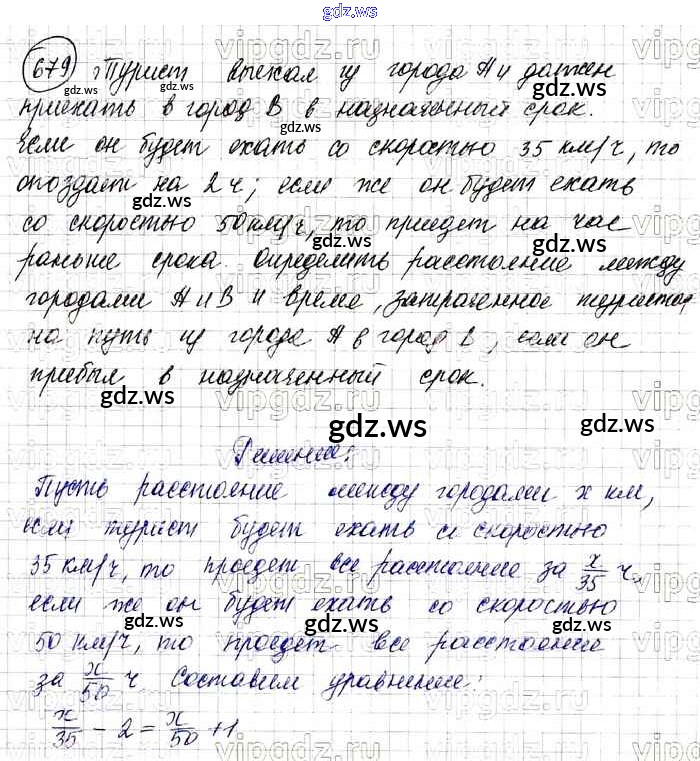 gdz.ws
679 Турист выехал из города А и должен
приехать в город В в назначенный срок.
Если он будет ехать со скоростью 35 км/ч, то
опоздает на 2 ч; если же он будет ехать
со скоростью 50 км/ч, то приедет на час
раньше срока. Определить расстояние между
городами А и В и время, затраченное туристом,
на путь из города А в город В, если он
прибыл в назначенный срок.
Решение:
Пусть расстояние между городами x км,
если турист будет ехать со скоростью
35 км/ч, то проедет все расстояние за x/35 ч,
если же он будет ехать со скоростью
50 км/ч, то проедет все расстояние
за x/50 ч Составим уравнение:
x/35 - 2 = x/50 + 1